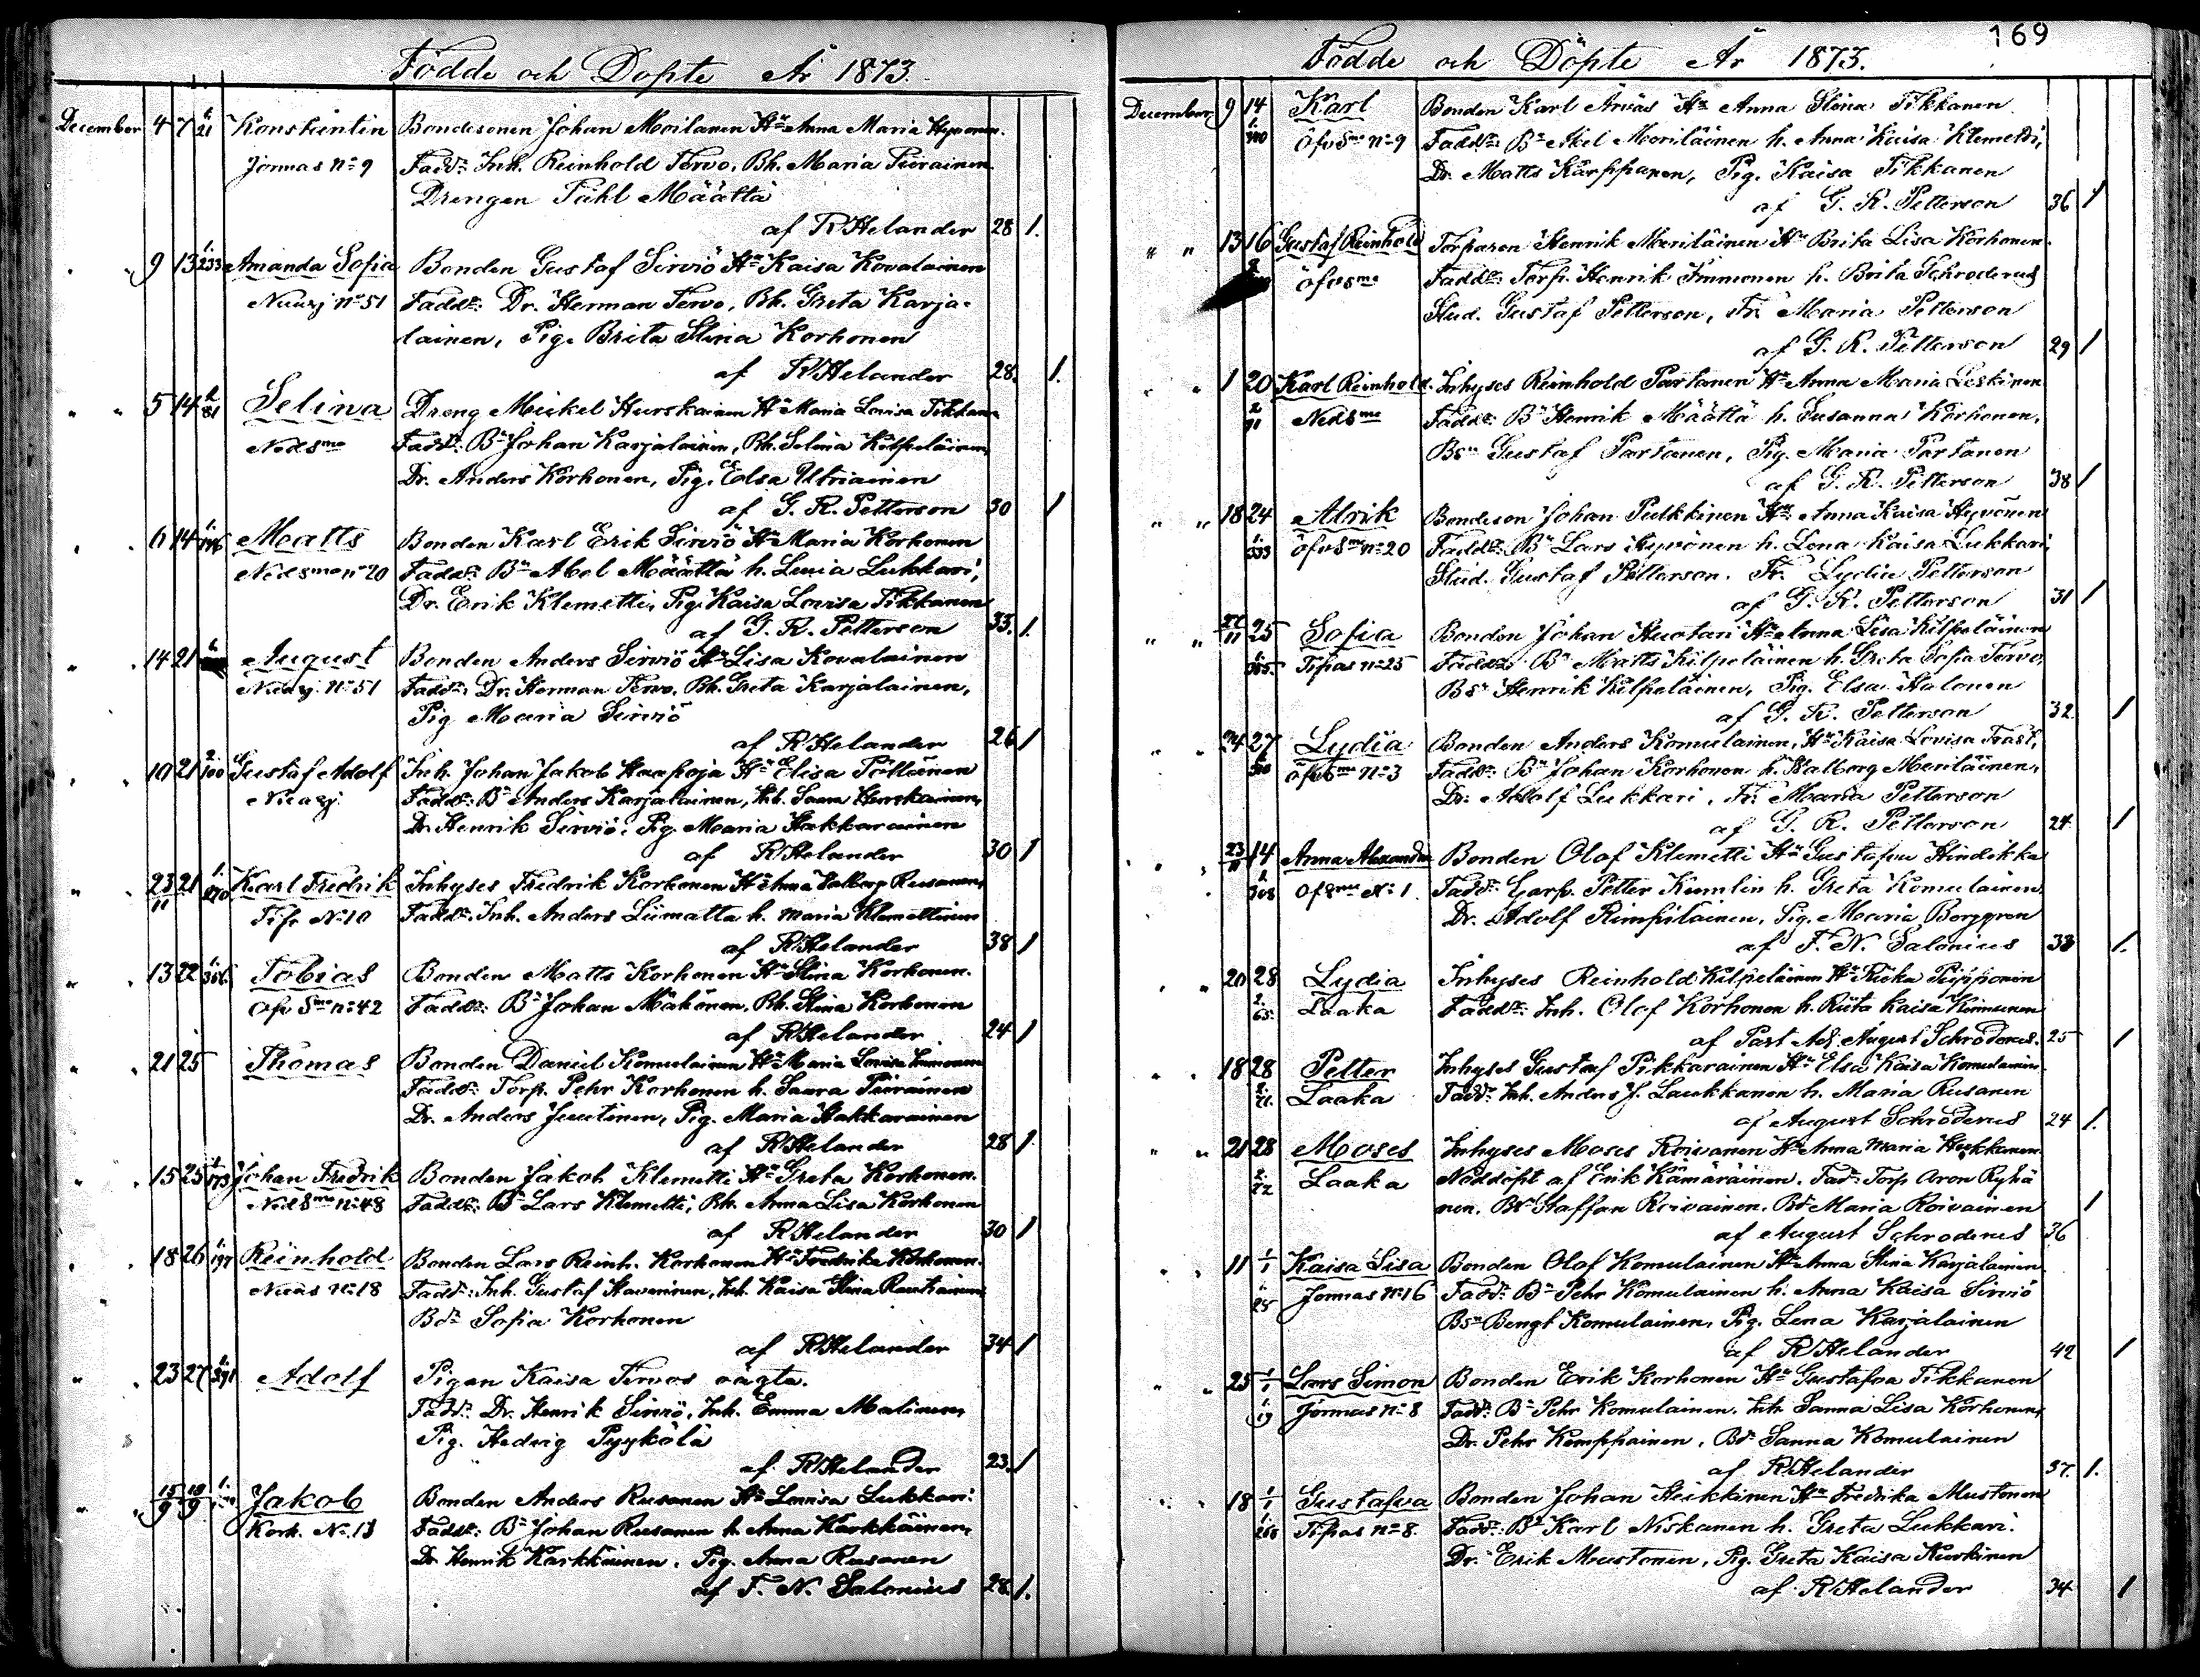 Födde och Döpte År 1873.
December 4 7 Konstantin Bondesonen Johan Moilanen Hu Anna Maria Hyvönen.
Jormas No 9 Fadd: Inh. Reinhold Tervo, Bh. Maria Piirainen
Drengen Påhl Määttä
af R Helander 28 1.
" " 9 13 1/233 Amanda Sofia Bonden Gustaf Sirviö Hu Kaisa Kovalainen
Nuasj No 51 Fadd: Dr. Herman Tervo, Bh. Greta Karja-
lainen, Pig. Brita Stina Korhonen
af R Helander 28. 1.
" " 5 14 2/81 Selina Dreng Mickel Hurskainen Hu Maria Lovisa Tikkanen
Nedsmo Fadd: Bn Johan Karjalainen, Bh. Selina Kilpeläinen,
Dr. Anders Korhonen, Pig. Elsa Utriainen
af G. R. Petterson 30 1
" " 6 14 Matts Bonden Karl Erik Sirviö Hu Maria Korhonen
Nedsmo no 20 Fadd: Bn Abel Määttä h. Lucia Lukkari,
Dr. Erik Klemetti, Pig. Kaisa Lovisa Tikkanen
af G. R. Petterson 33. 1.
" " 14 21 August Bonden Anders Sirviö Hu Lisa Kovalainen
Nuasj. No 51 Fadd: Dr. Herman Tervo, Bh. Greta Karjalainen,
Pig Maria Sirviö
af R Helander 26 1
" " 10 21 2/100 Gustaf Adolf Inh. Johan Jakob Haapoja Hu Elisa Pöllänen
Nuasj. Fadd: Bn Anders Karjalainen, Inh. Saara Hurskainen,
Dr. Henrik Sirviö, Pig. Maria Hakkarainen
af R Helander 30 1
" " 23/11 21 Karl Fredrik Inhyses Fredrik Korhonen Hu Anna Valborg Rusanen,
Tip. No 10 Fadd: Inh. Anders Liimatta h. Maria Klemettinen
af R Helander 38 1
" " 13 22 Tobias Bonden Matts Korhonen Hu Stina Korhonen.
Öfv Smo no 42 Fadd: Bn Johan Mähönen, Bh. Stina Korhonen
af R Helander 24 1
" " 21 25 Thomas Bonden Daniel Komulainen Hu Maria Lovisa Immonen
Fadd: Torp. Pehr Korhonen h. Saara Piirainen
Dr. Anders Juutinen, Pig. Maria Hakkarainen
af R Helander 28 1
" " 15 25 Johan Fredrik Bonden Jakob Klemetti Hu Greta Korhonen.
Nedsmo no 48 Fadd: Bn Lars Klemetti, Bh. Anna Lisa Korhonen
af R Helander 30 1
" " 18 26 1/197 Reinhold Bonden Lars Reinh. Korhonen Hu Fredrika Korhonen.
Nuas no 18 Fadd: Inh. Gustaf Haverinen, Inh. Kaisa Stina
Bdr Sofia Korhonen
af R Helander 34 1
" " 23 27 Adolf Pigan Kaisa Tervos oägta.
Fadd: Dr. Henrik Sirviö, Inh. Emma Malinen,
Pig. Hedvig Pyykölä
af R Helander 23. 1
" " 15/9 19/9 Jakob Bonden Anders Rusanen Hu Lovisa Lukkari.
Kork. No 13 Fadd: Bn Johan Rusanen h. Anna Karkkäinen,
Dr. Henrik Karkkäinen, Pig. Anna Rusanen
af F. N. Salonius 28. 1.
169
Födde och Döpte År 1873.
December 9 14 Karl Bonden Karl Arvas Hu Anna Stina Tikkanen
Öfvsmo no 9 Fadd: Bn Axel Meriläinen h. Anna Kaisa Klemetti,
Dr. Matts Karppanen, Pig. Kaisa Tikkanen
af G. R. Petterson 36 1
" " 13 16 Gustaf Reinhold Torparen Henrik Meriläinen Hu Brita Lisa Korhonen.
Öfvsmo Fadd: Torp. Henrik Immonen h. Brita Schroderus
Stud. Gustaf Petterson, Fr. Maria Petterson
af G. R. Petterson 29 1
" " 1 20 Karl Reinhold. Inhyses Reinhold Partanen Hu Anna Maria Leskinen
2/91 Nedsmo Fadd: Bn Henrik Määttä h. Susanna Korhonen,
Bsn Gustaf Partanen, Pig. Maria Partanen
af G. R. Petterson 38 1
" " 18 24 Alrik Bondeson Johan Pulkkinen Hu Anna Kaisa Hyvönen
1/333 Öfvsmo no 20 Fadd: Bn Lars Hyvönen h. Lena Kaisa Lukkari,
Stud. Gustaf Petterson. Fr. Lydia Petterson
af G. R. Petterson 31 1
" " 22/11 25 Sofia Bonden Johan Huotari Hu Anna Lisa Kilpeläinen
Tipas no 25 Fadd: Bn Matts Kilpeläinen h. Greta Sofia Tervo,
Bsn Henrik Kilpeläinen, Pig. Elsa Halonen
af G. R. Petterson 32. 1
" " 24 27 Lydia Bonden Anders Komulainen, Hu Kaisa Lovisa Trast,
Öfvsmo no 3 Fadd: Bn Johan Korhonen h. Walborg Meriläinen,
Dr. Adolf Lukkari, Fr. Maria Petterson
af G. R. Petterson 24 1
" " 23/11 14 Anna Alexandra Bonden Olof Klemetti Hu Gustafva Hindikka
Öfvsmo No 1. Fadd: Garfv. Petter Kumlin h. Greta Komulainen
Dr. Adolf Rimpiläinen, Pig. Maria Borggren
af F. N. Salonius 33 1.
" " 20 28 Lydia Inhyses Reinhold Kilpeläinen Hu Fredrika Piipponen
2/65 Laaka Fadd: Inh. Olof Korhonen h. Riita Kaisa Kinnunen
af Past. Adj. August Schroderus. 25 1
" " 18 28 Petter Inhyses Gustaf Pikkarainen Hu Elsa Kaisa Komulainen
Laaka Fadd: Inh. Anders J. Laukkanen h. Maria Rusanen
af August Schroderus 24 1.
" " 21 28 Moses Inhyses Moses Roivanen Hu Anna Maria Heikkanen
2/22 Laaka Nöddöpt af Erik Kämäräinen. Fad: Torp. Aron Ryhä
nen. Bsn Staffan Roivainen, Bdr Maria Roivainen 1
af August Schroderus 36
" " 11 1/1 Kaisa Lisa Bonden Olof Komulainen Hu Anna Stina Karjalainen
1/25 Jormas no 16 Fadd: Bn Pehr Komulainen h. Anna Kaisa Sirviö
Bsn Bengt Komulainen, Pig. Lena Karjalainen
af R Helander 42 1
" " 25 1/1 Lars Simon Bonden Erik Korhonen Hu Gustafva Tikkanen
1/19 Jormas no 8 Fadd: Bn Pehr Komulainen, Inh. Sanna Lisa Korhonen,
Dr. Pehr Kemppainen, Bdr Sanna Komulainen
af R Helander 37. 1.
" " 18 1/1 Gustafva Bonden Johan Heikkinen Hu Fredrika Mustonen
Tipas no 8. Fadd: Bn Karl Niskanen h. Greta Lukkari.
Dr. Erik Mustonen, Pig. Greta Kaisa Kurkinen
af R Helander 34 1